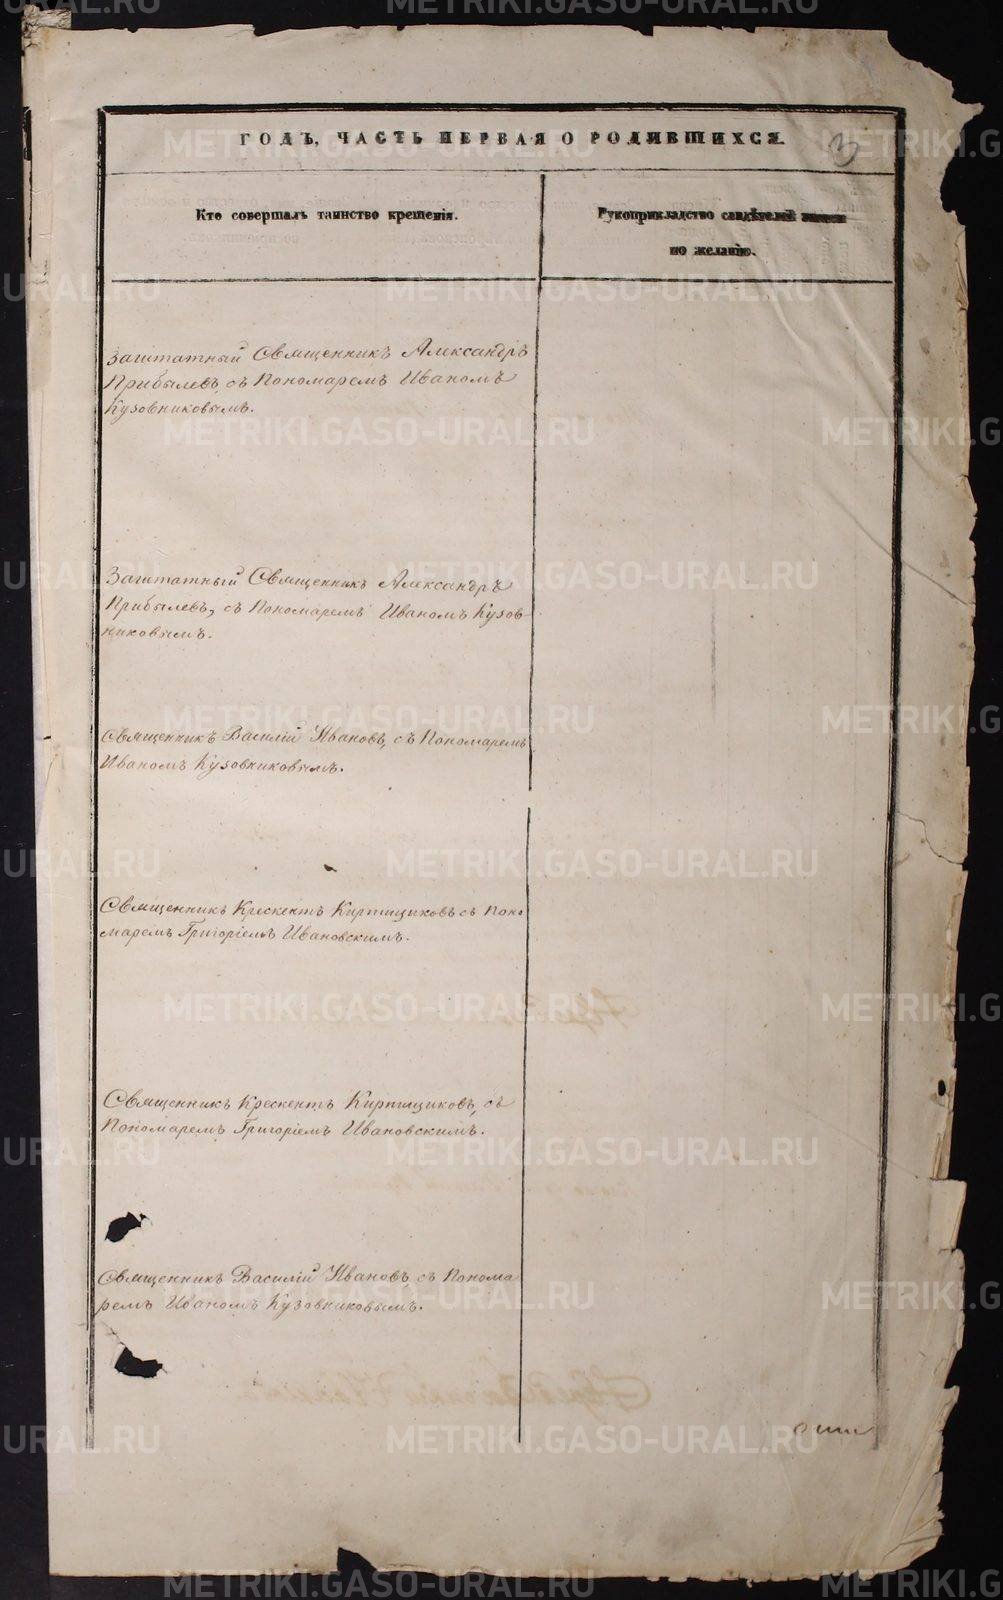 ГОДЪ, ЧАСТЬ ПЕРВАЯ О РОДИВШИХСЯ.
3
Кто совершалъ таинство крещенія.
Рукоприкладство свидѣтелей записи
по желанію.
Заштатный Священникъ Александръ
Прибылевъ, съ Пономаремъ Иваномъ
Кузовниковымъ.
Заштатный Священникъ Александръ
Прибылевъ, съ Пономаремъ Иваномъ Кузов-
никовымъ.
Священникъ Василій Ивановъ, съ Пономаремъ
Иваномъ Кузовниковымъ.
Священникъ Крескентъ Киртищиковъ съ Поно
маремъ Григоріемъ Ивановскимъ.
Священникъ Крескентъ Киртищиковъ, съ
Пономаремъ Григоріемъ Ивановскимъ.
Священникъ Василій Ивановъ, съ Понома
ремъ Иваномъ Кузовниковымъ.
METRIKI.GASO-URAL.RU